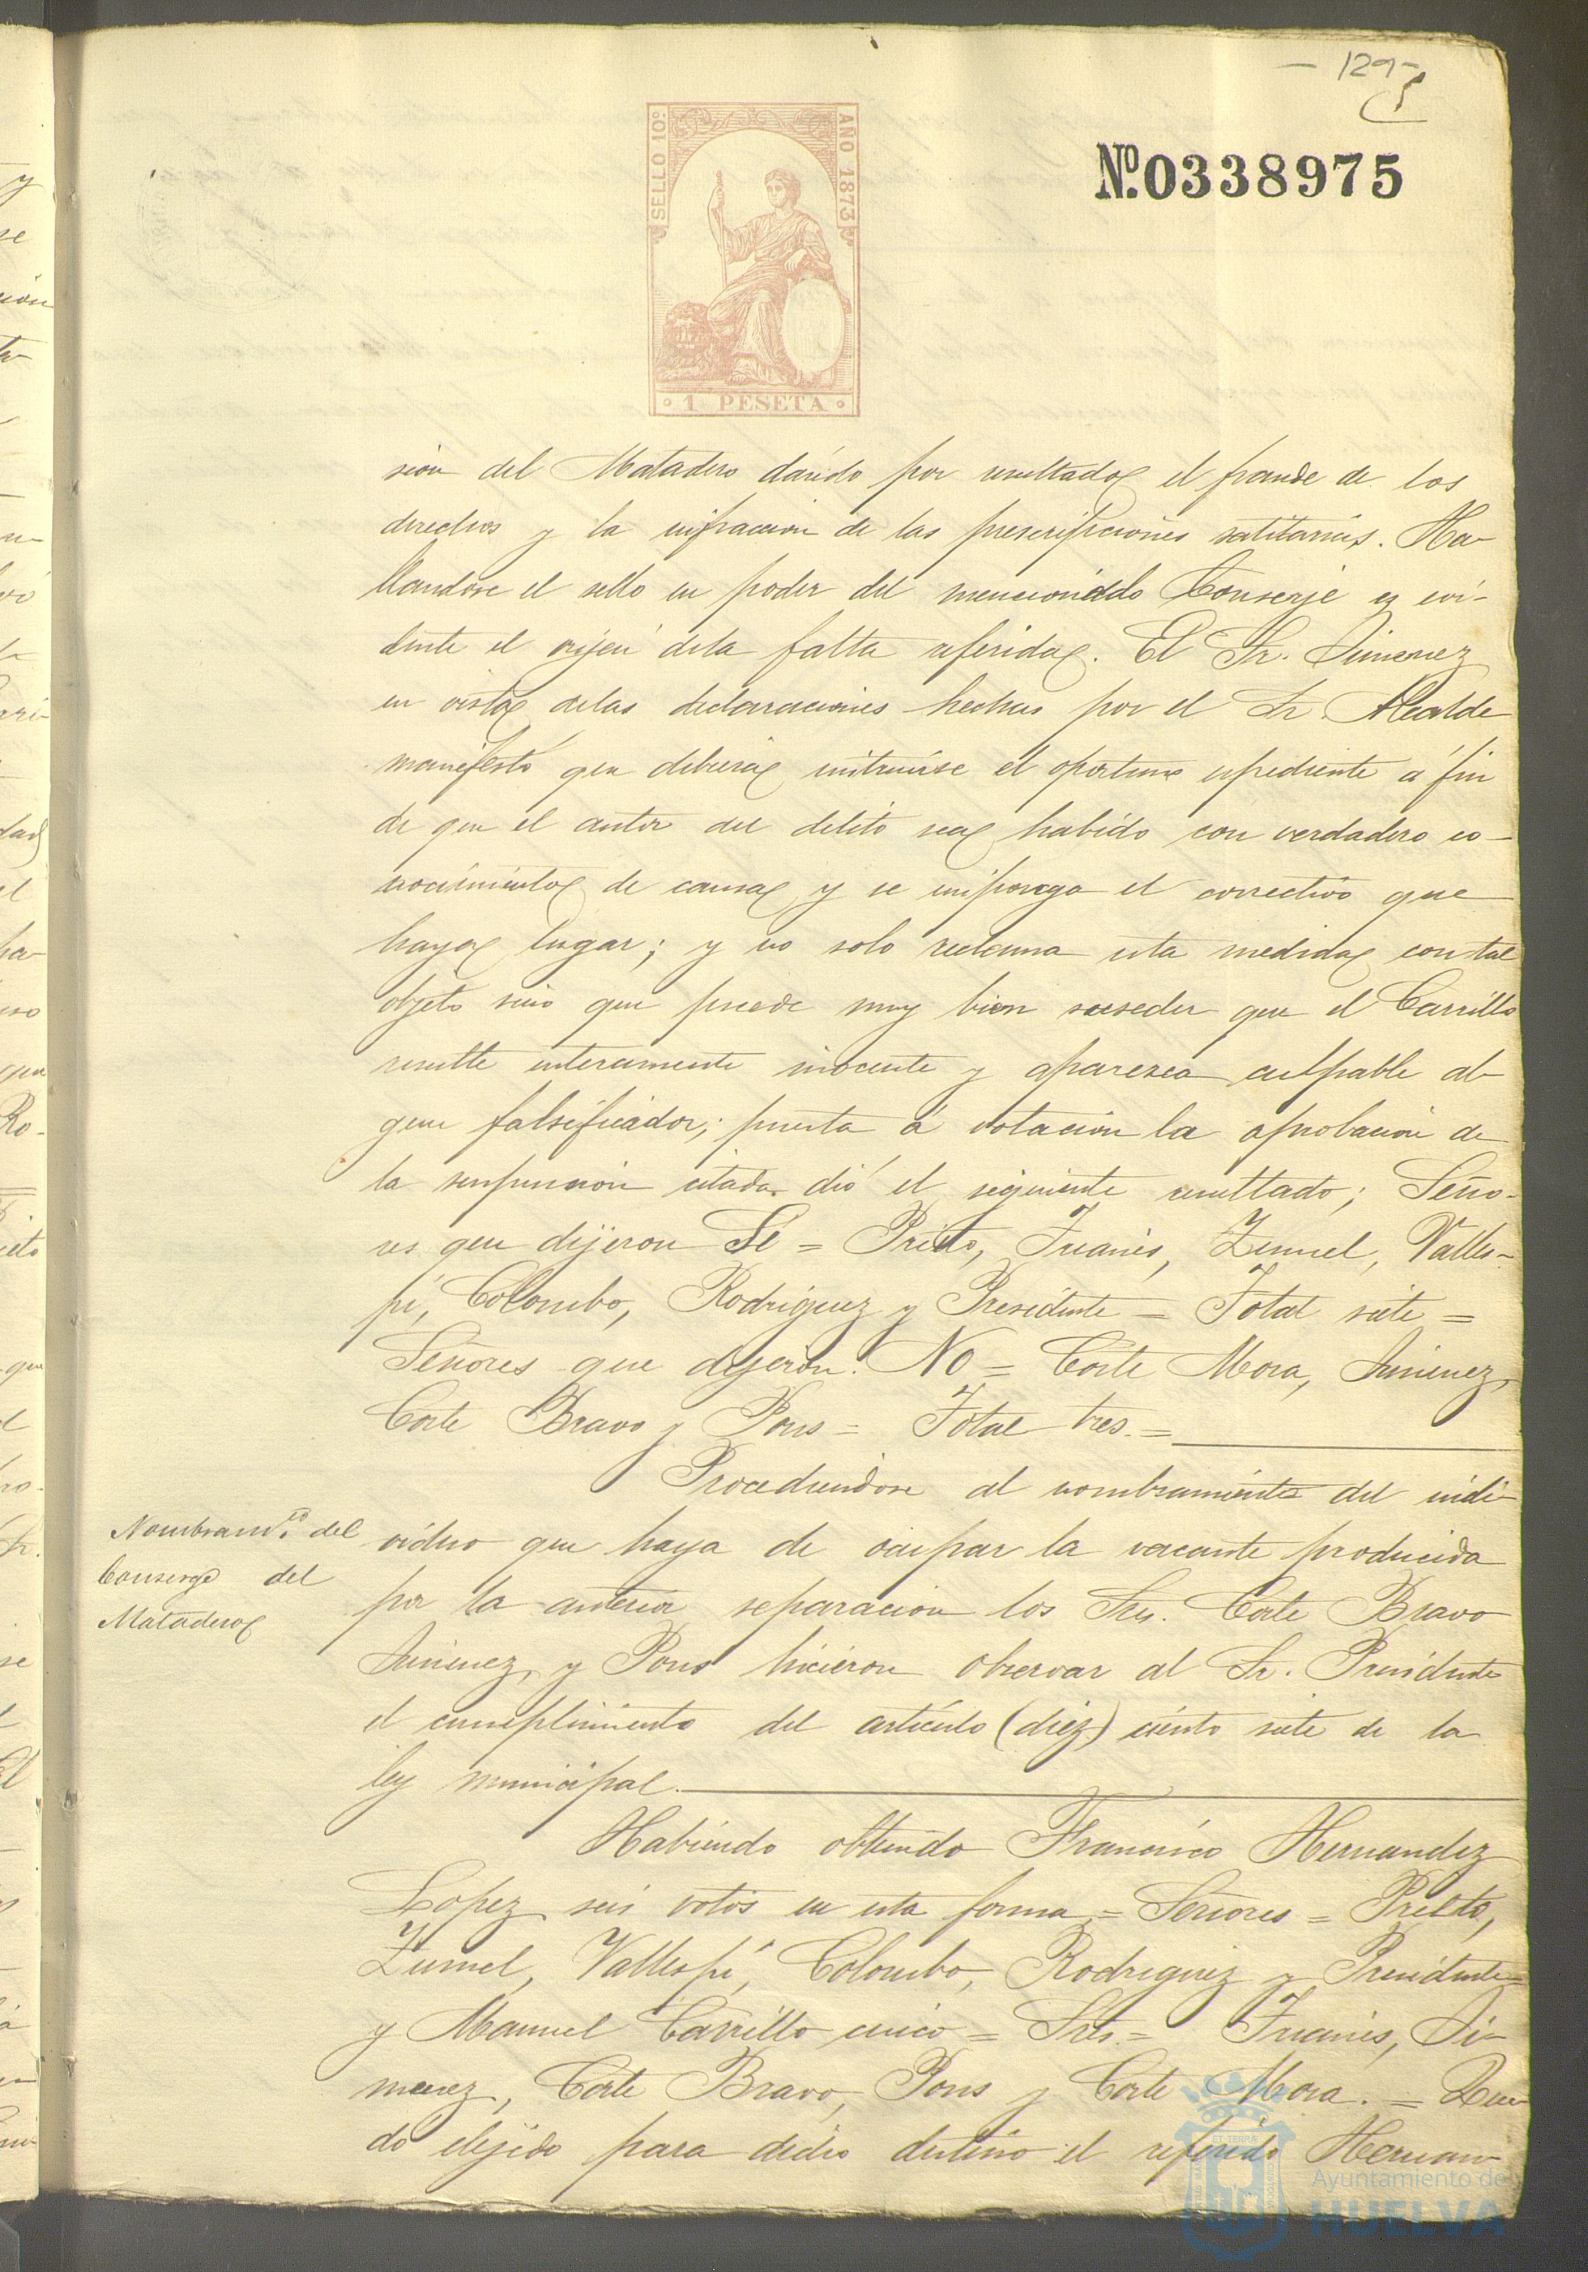 - 129 -
SELLO 10º
AÑO 1873
Nº 0338975
1 PESETA
sion del Matadero dando por resultado el fraude de los
derechos y la infraccion de las prescripciones satitarias. Ha-
llandose el sello en poder del mencionado Conserje es evi-
dente el orijen dela falta referida. El Sr. Jimenez
en vista delas declaraciones hechas por el Sr. Alcalde
manifestó que debiera instruirse el oportuno espediente á fin
de que el autor del delito sea habido con verdadero co-
nocimiento de causa y se imponga el correctivo que
haya lugar; y no solo reclama esta medida con tal
objeto sino que puede muy bien suseder que el Carrillo
resulte enteramente inocente y aparezca culpable al-
gun falsificador; puesta á votacion la aprobacion de
la suspension citada dió el siguiente resultado; Seño-
res que dijeron Sí = Prieto, Juanes, Zumel, Valles-
pí, Colombo, Rodriguez y Presidente = Total siete =
Señores que dijeron. No = Corte Mora, Jimenez,
Corte Bravo y Pons = Total tres. =
Procediendose al nombramiento del indi-
Nombramto. del
Conserge del
Matadero
viduo que haya de ocupar la vacante producida
por la anterior separacion los Sres. Corte Bravo
Jimenez, y Pons hicieron observar al Sr. Presidente
el cumplimiento del artículo (diez) ciento siete de la
ley municipal.
Habiendo obtenido Francisco Hernandez
Lopez seis votos en esta forma = Señores = Prieto,
Zumel, Vallespí, Colombo, Rodriguez y Presidente =
y Manuel Carrillo cinco = Sres = Juanes, Ji-
menez, Corte Bravo, Pons y Corte Mora. = Que-
dó elejido para dicho destino el referido Hernan-
Ayuntamiento de
HUELVA